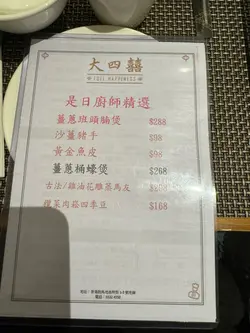 大四囍
FULL HAPPINESS
是日廚師精選
薑蔥班頭腩煲 $288
沙薑豬手 $98
黃金魚皮 $98
薑蔥桶蠔煲 $268
古法/雞油花雕蒸馬友
欖菜肉崧四季豆 $168